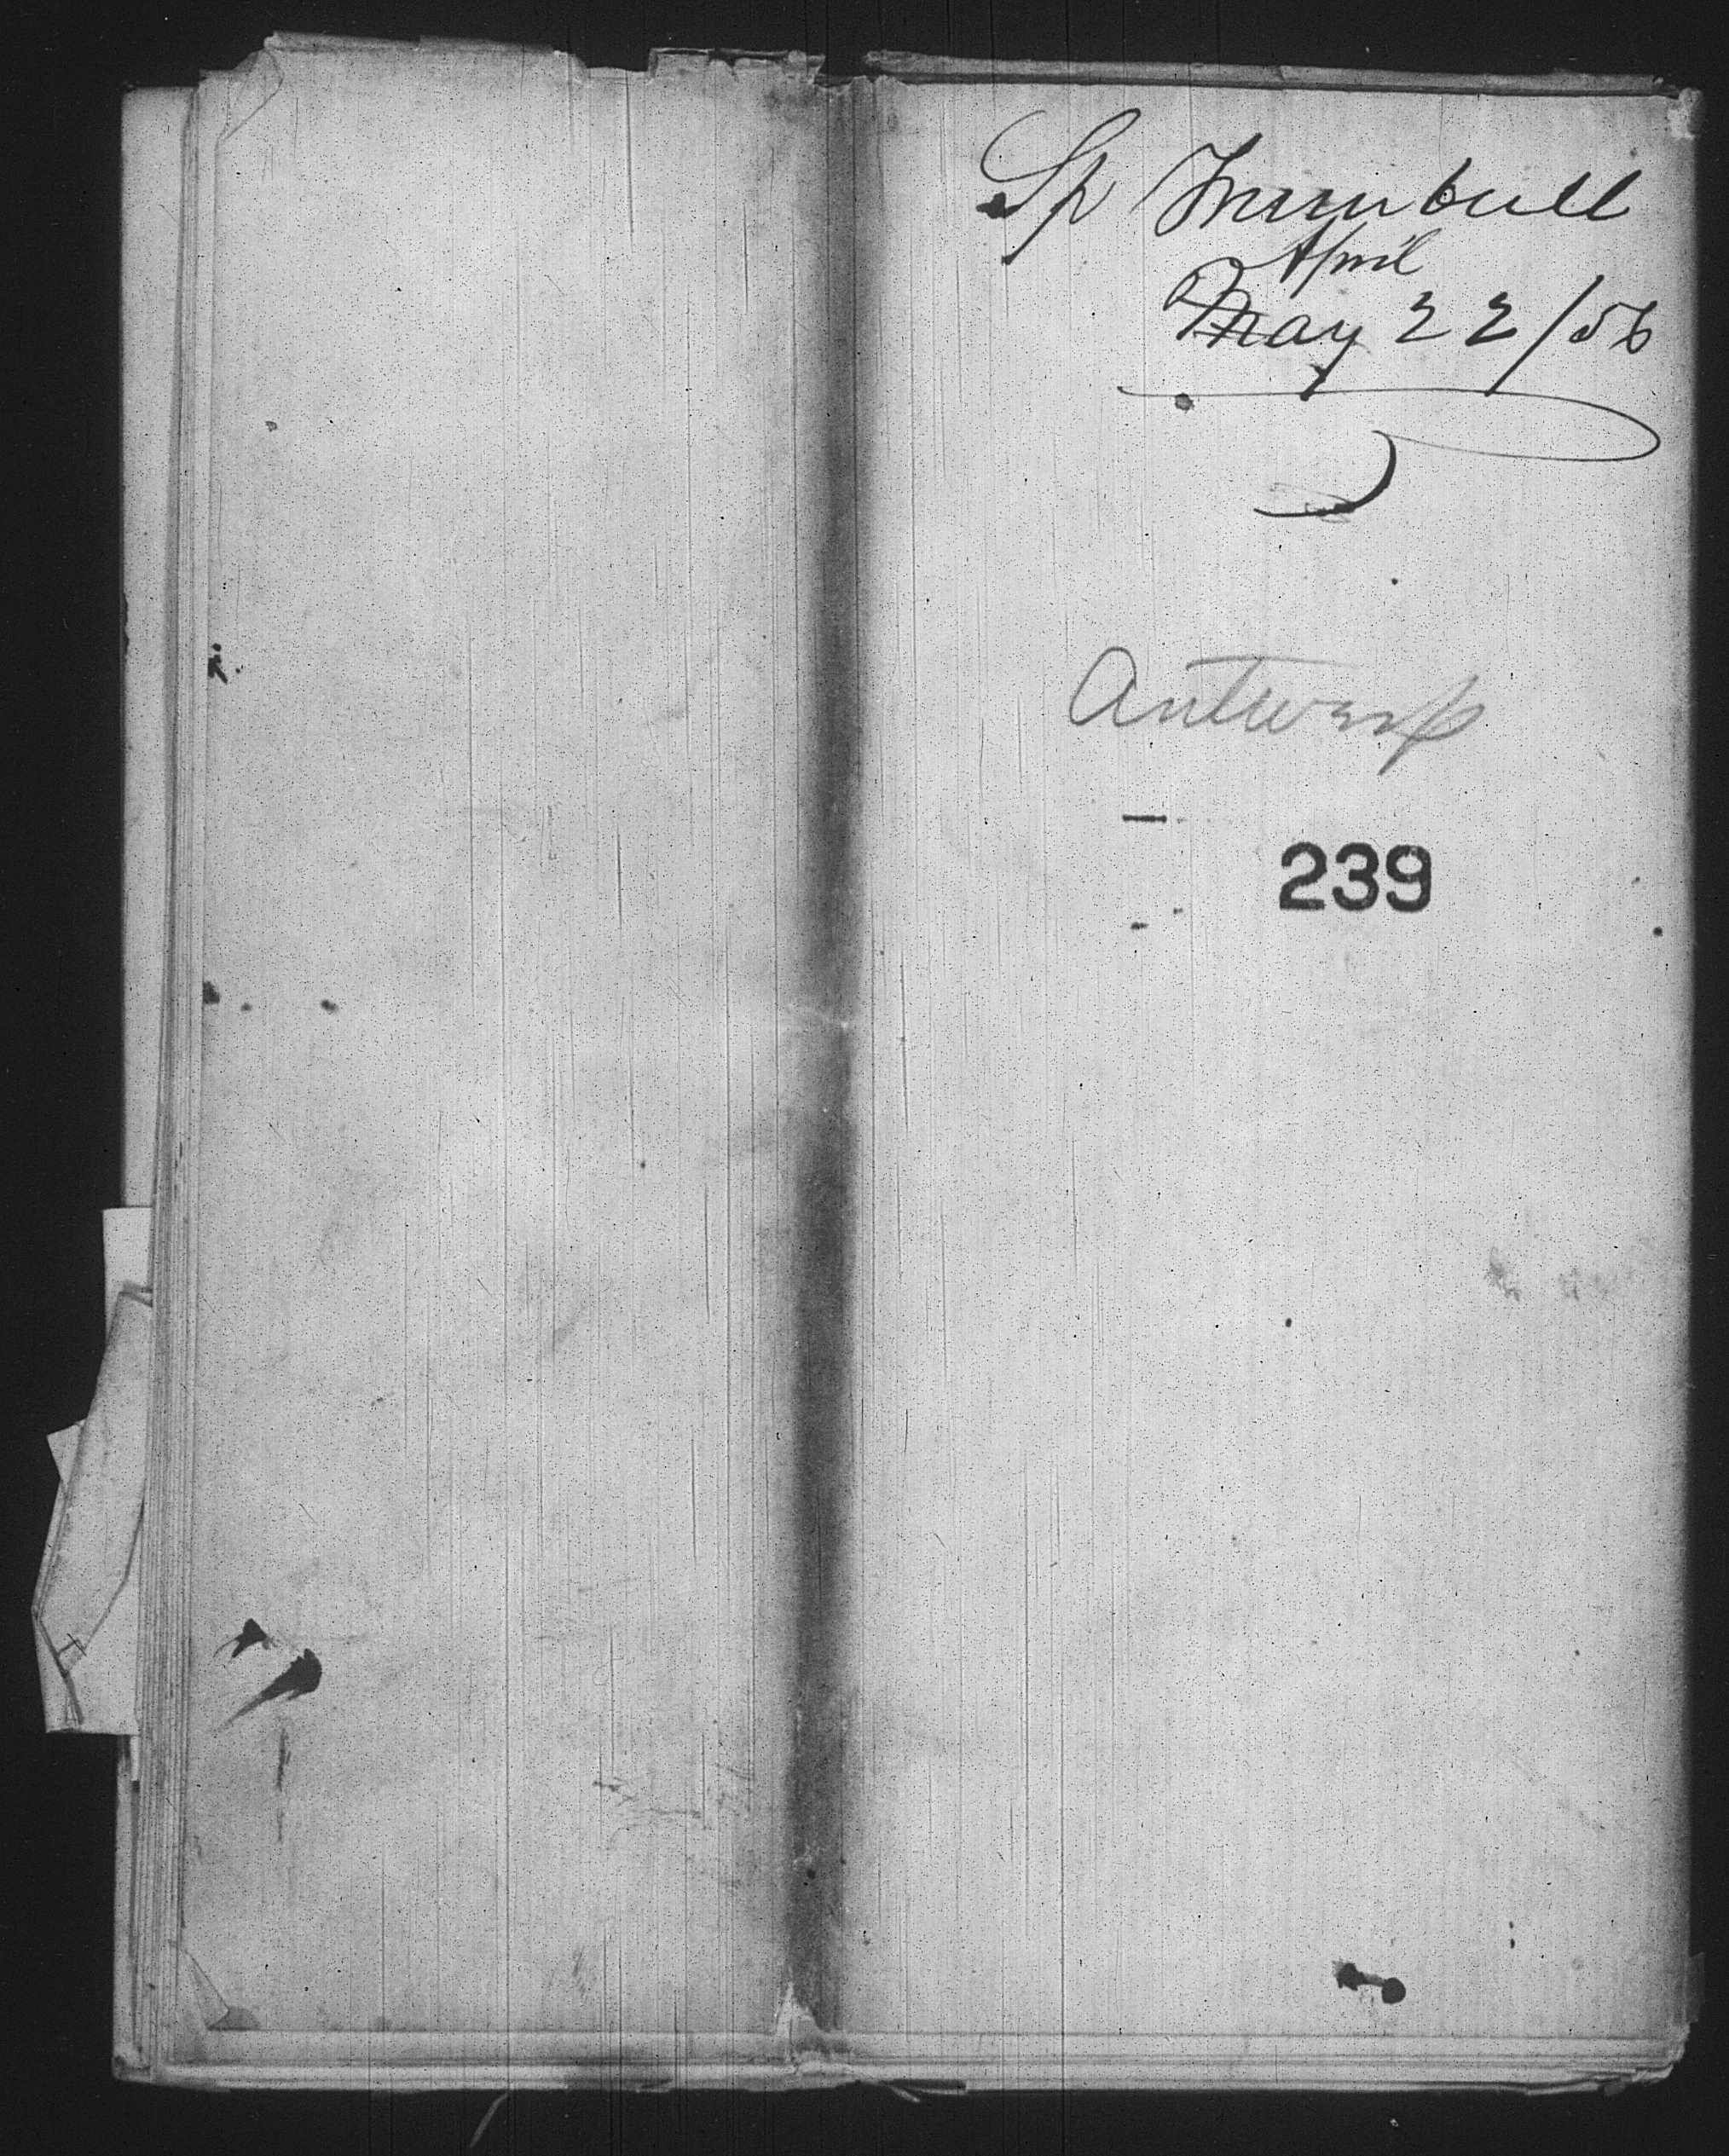 Sp Trumbull
April
May 22/56
Antwerp
239